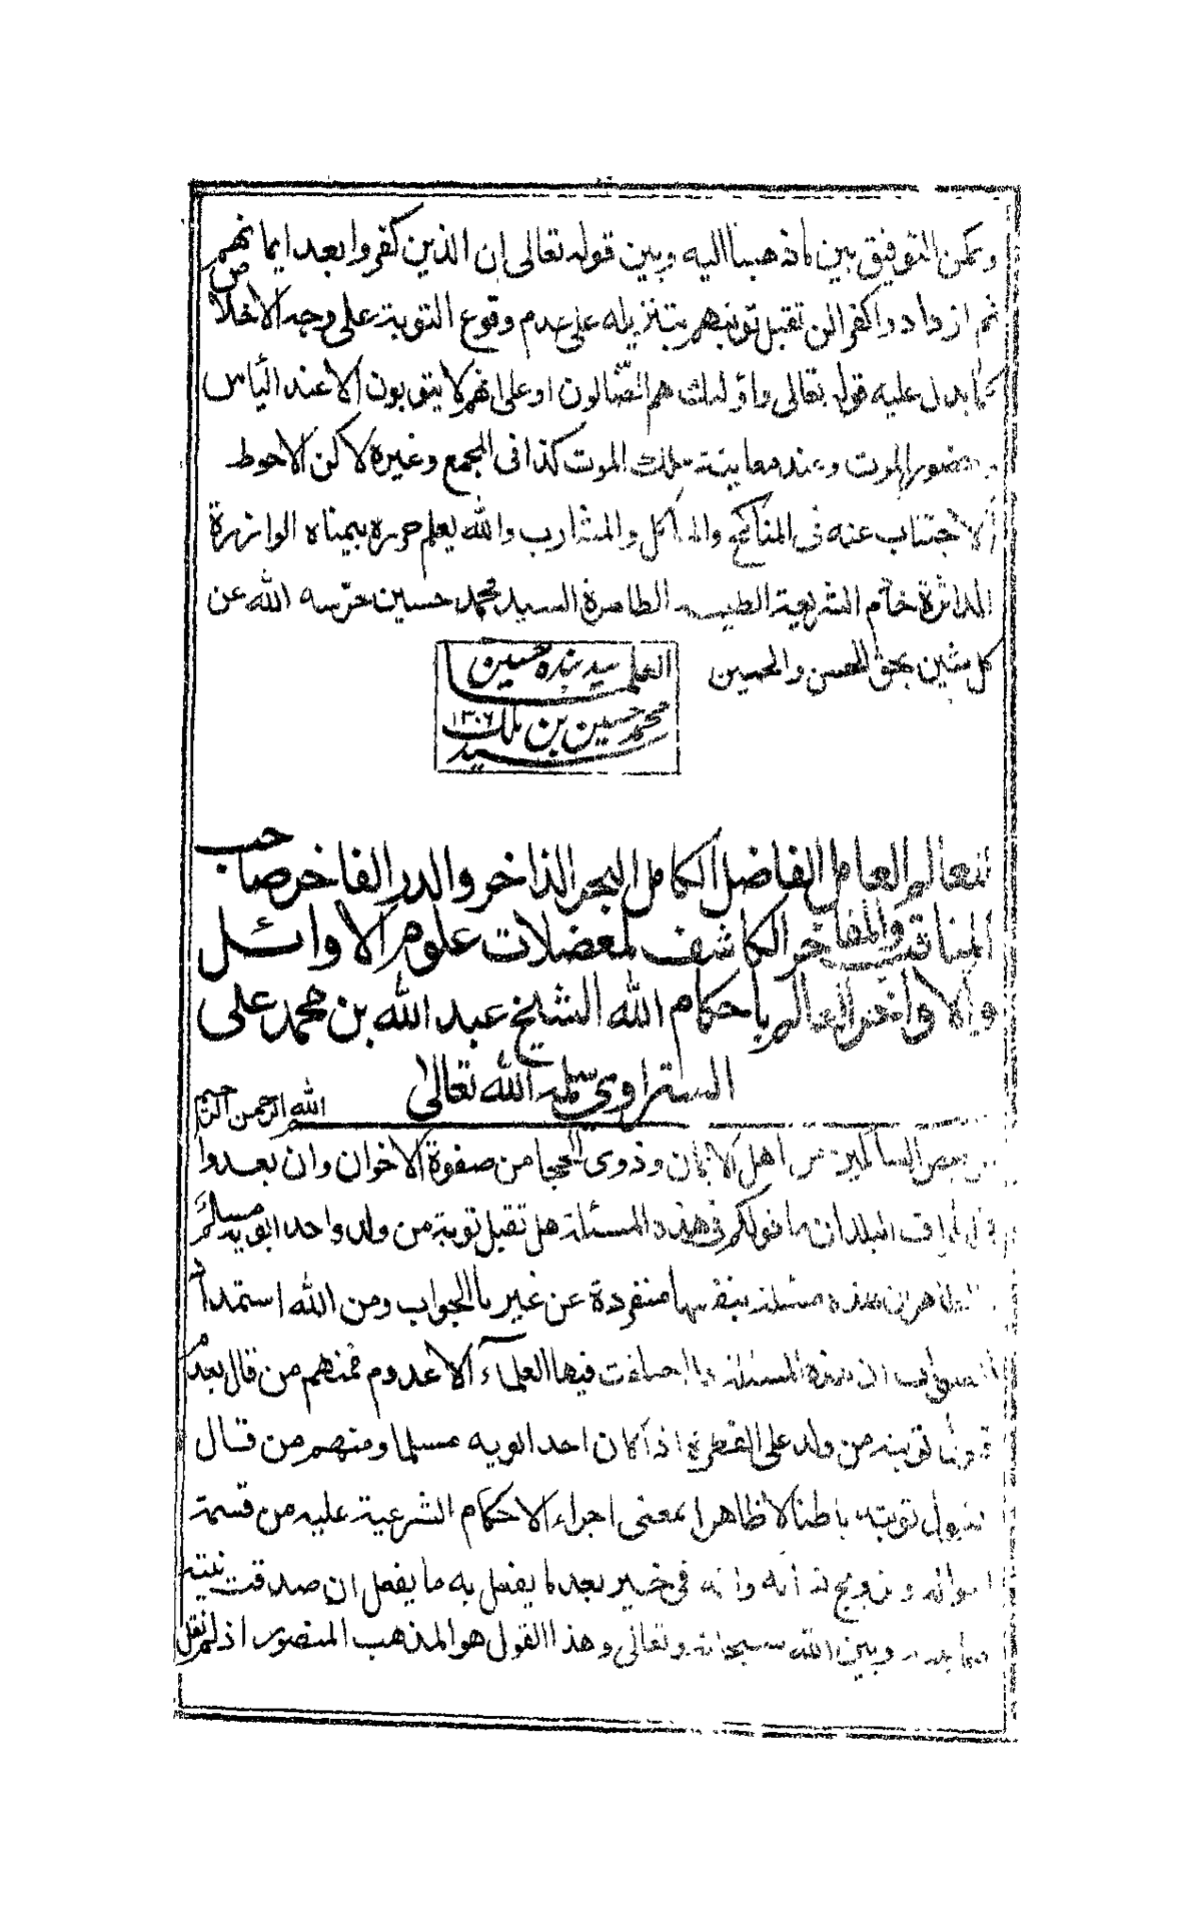 ويمكن التوفيق بين ما ذهبنا اليه وبين قوله تعالى ان الذين كفروا بعد ايمانهم
ثم ازدادوا كفرا لن تقبل توبتهم بتنزيله على عدم وقوع التوبة على وجه الاخلاص
كما يدل عليه قوله تعالى واولئك هم الضالون او على انهم لا يتوبون الا عند الياس
حضور الموت وعند معاينة ملك الموت كذا فى المجمع وغيره لاكن الاحوط
الاجتناب عنه فى المناكح والمأكل والمشارب والله يعلم حرره بيمناه الوازرة
الداثرة خادم الشريعة الطيبة الطاهرة السيد محمد حسين حرّسه الله عن
كل شين بحق الحسن والحسين
العلما سيد بنده حسين
محمد حسين بن ملك ١٣٠٦
سيد
للعالم العامل الفاضل الكامل البحر الذاخر والدر الفاخر صاحب
المناقب والمفاخر الكاشف لمعضلات علوم الاوائل
والاواخر العالم باحكام الله الشيخ عبد الله بن محمد على
الستراوي سلمه الله تعالى
الله الرحمن الرحيم
بعض السائلين من اهل الايمان وذوى الحجا من صفوة الاخوان وان بعدوا
فى اطراف البلدان ما قولكم فى هذه المسئلة هل تقبل توبة من ولد واحد ابويه مسلم
هذه مسئلة بنفسها منفردة عن غير ما الجواب ومن الله استمداد
الصواب ان هذه المسئلة اختلفت فيها العلمآء الاعدوم فمنهم من قال بعدم
قبول توبته من ولد على الفطرة اذا كان احد ابويه مسلما ومنهم من قال
بقبول توبته باطنا لا ظاهرا بمعنى اجراء الاحكام الشرعية عليه من قسمة
امواله وتزويج وانه فى خير بعد ما يفعل به ما يفعل ان صدقت نيته
وبين الله سبحانه وتعالى وهذا القول هو المذهب المنصور اذ لم نقل